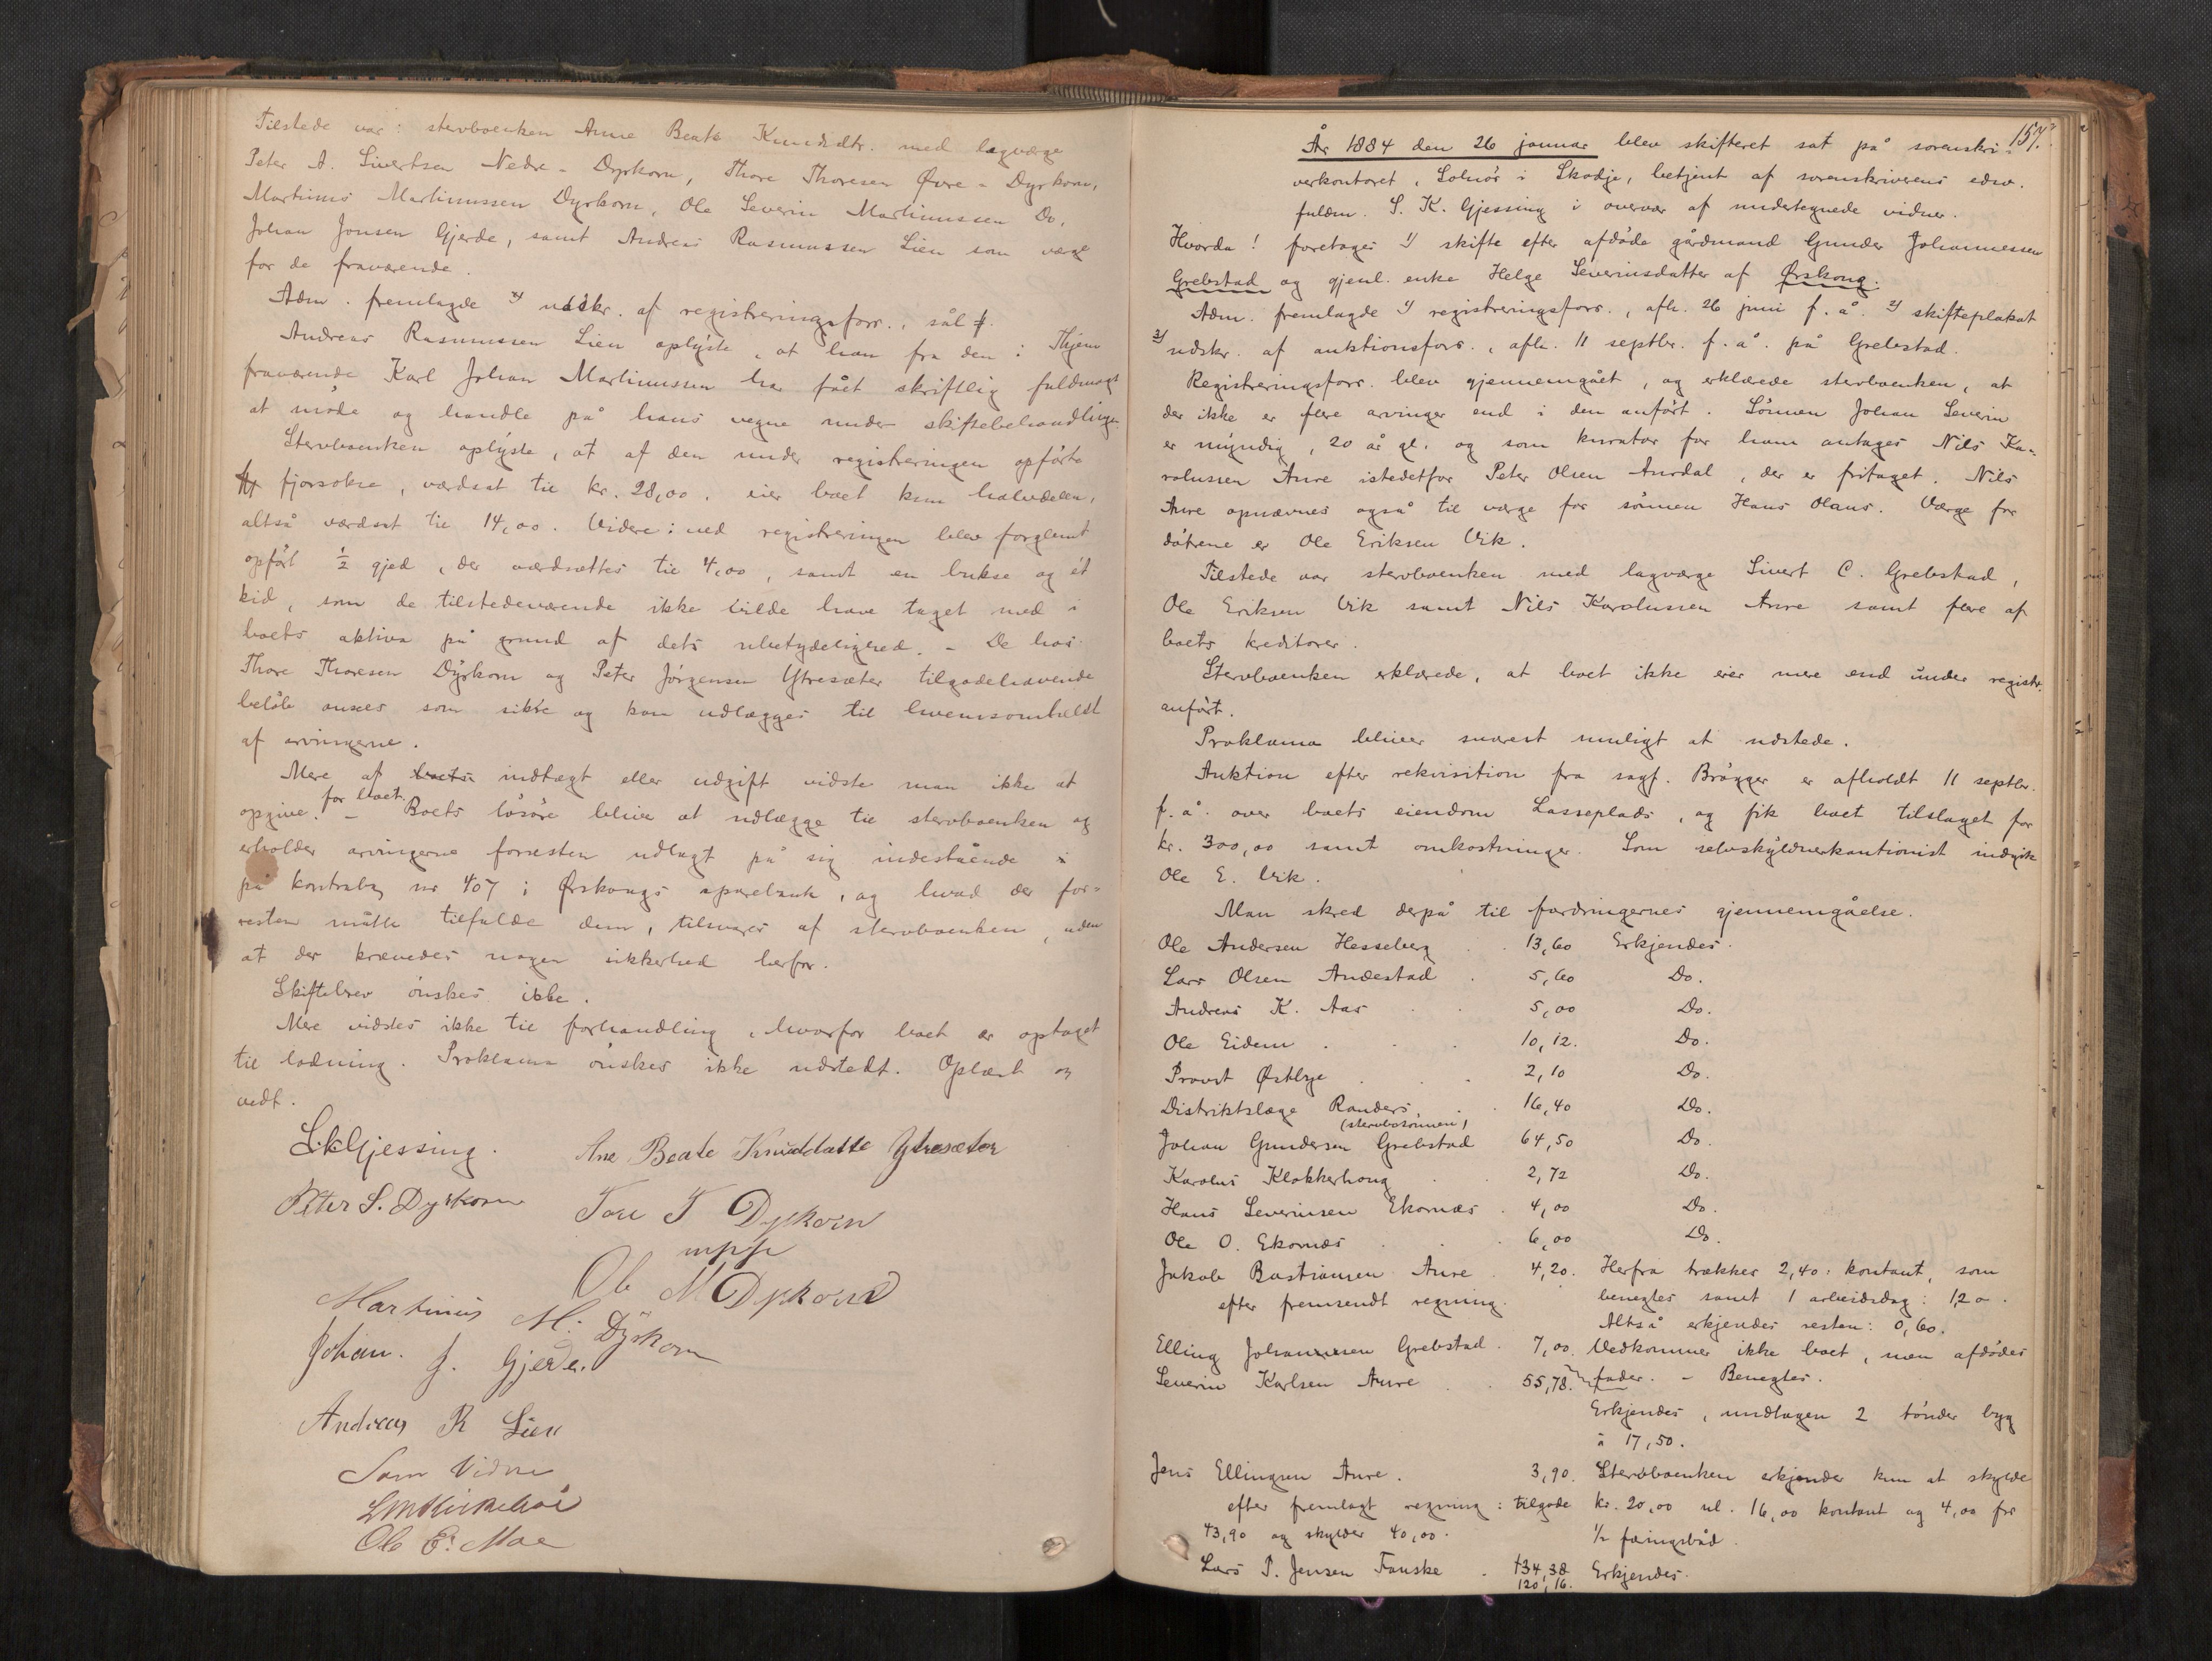 Tilstede var: stervboenken Anne Beate Knudsdtr. med lagværge
Peter A. Sivertsen Nedre-Dyrkorn, Thore Thoresen Øvre-Dyrkorn,
Martinus Martinussen Dyrkorn, Ole Severin Martinussen Do,
Johan Jonsen Gjerde, samt Andreas Rasmussen Lien som værge
for de fraværende.
Adm. fremlagde udskr. af registreringsforr., sål
Andreas Rasmussen Lien oplyste, at han fra den: Hjem
fraværende Karl Johan Martinussen har fåt skriftlig fuldmagt
at møde og handle på hans vegne under skiftebehandlingen
Stervboenken oplyste, at af den under registreringen opførte
fjorsokse, værdsat til kr. 28,00, eier boet kun halvdelen,
altså værdsat til 14,00. Videre: ved registreringen blev forglemt
opført ½ gjed, der værdsættes til 4,00, samt en bukse og ét
kid, som de tilstedeværende ikke vilde have taget med i
boets aktiva på grund af dets ubetydelighed. - De hos
Thore Thoresen Dyrkorn og Peter Jørgensen Ytresæter tilgodehavende
beløb ansees som sikre og kan udlægges til hvemsomhelst
af arvingerne.
Mere af boets indtægt eller udgift vidste man ikke at
opgive for boet. - Boets løsøre bliver at udlægge til stervboenken og
erholder arvingerne forresten udlagt på sig indestående
på kontrabog nr 407 i Ørskougs sparebank, og hvad der for=
resten måtte tilfalde dem, tilsvares af stervboenken, uden
at der krævedes nogen sikkerhed herfor.
Skiftebrev ønskes ikke.
Mere vidstes ikke til forhandling, hvorfor boet er optaget
til lodning. Proklama ønskes ikke udstedt. Oplæst og
vedt.
S.K.Gjessing. Ane Beate Knuddatte Ytresæter
Peter S. Dyrkorn Tore T Dyrkorn
mpp
Ole M Dyrkorn
Martinus M. Dyrkorn
Johan. J. Gjerde.
Andreas R Lien
Som Vidne
Ole E. Moe
157.
År 1884 den 26 januar blev skifteret sat på sorenskri-
verkontoret, Solnør i Skodje, betjent af sorenskriverens edsv.
fuldm. S. K. Gjessing i overvær af undertegnede vidner.
Hvorda! foretages 1) skifte efter afdøde gårdmand Gunder Johannessen
Grebstad og gjenl. enke Helge Severinsdatter af Ørskoug.
Adm. fremlagde 1) registreringsforr., afh. 26 juni f. å. 2) skifteplakat
3) udskr. af auktionsforr., afh. 11 septbr. f. å. på Grebstad.
Registreringsforr. blev gjennemgået, og erklærede stervboenken, at
der ikke er flere arvinger end i den anført. Sønnen Johan Severin
er myndig, 20 år gl. og som kurator for ham antages Nils Ka=
rolussen Aure istedetfor Peter Olsen Aurdal, der er fritaget. Nils
Aure opnævnes også til værge for sønnen Hans Olaus. Værge for
døtrene er Ole Eriksen Vik.
Tilstede var stervboenken med lagværge Sivert C. Grebstad,
Ole Eriksen Vik samt Nils Karolussen Aure samt flere af
boets kreditorer.
Stervboenken erklærede, at boet ikke eier mere end under registr.
anført.
Proklama bliver snarest muligt at udstede.
Auktion efter rekvisition fra sagf. Brøgger er afholdt 11 septbr.
f. å. over boets eiendom Lasseplads, og fik boet tilslaget for
kr. 300,00 samt omkostninger. Som selvskyldnerkautionist indgik
Ole E. Vik.
Man skred derpå til fordringernes gjennemgåelse.
Ole Andersen Hesseberg . . 13,60 Erkjendes.
Lars Olsen Andestad . 5,60 Do.
Andreas K. Aas . . 5,00 Do.
Ole Eidem . . . 10,12. Do.
Provst Østbye . . 2,10 Do.
Distriktslæge Randers. . . 16,40 Do.
(stervbosønnen)
Johan Gundersen Grebstad 64,50 Do.
Karolus Klokkerhoug . 2,72 Do.
Hans Severinsen Ekornæs . 4,00 Do.
Ole O. Ekornæs . . 6,00 Do.
Jakob Bastiansen Aure . 4,20. Herfra trækkes 2,40: kontant, som
efter fremsendt regning. benegtes samt 1 arbeidsdag: 1,20.
Altså erkjendes resten: 0,60.
Elling Johannesen Grebstad. 7,00. Vedkommer ikke boet, men afdødes
fader. - Benegtes.
Severin Karlsen Aure . . 55,78.
Erkjendes, undtagen 2 tønder byg
à 17,50.
Jens Ellingsen Aure. 3,90. Stervboenken erkjender kun at skylde
efter fremlagt regning: tilgode kr. 20,00 nl. 16,00 kontant og 4,00 for
43,90 og skylder 40,00. ½ færingsbåd.
Lars P. Jensen Fauske . 134,38 Erkjendes.
120,16.